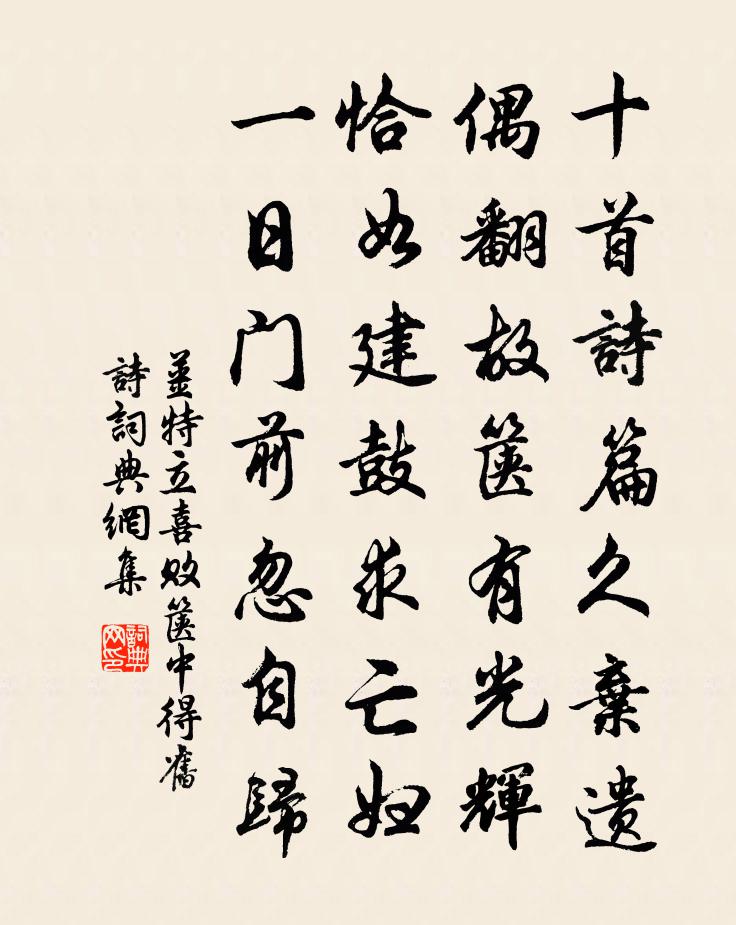 十首詩篇久棄遺
偶翻故篋有光輝
恰如建鼓求亡婦
一日门前忽自歸
姜特立喜敗篋中得舊
詩詞典網集
詞典網印